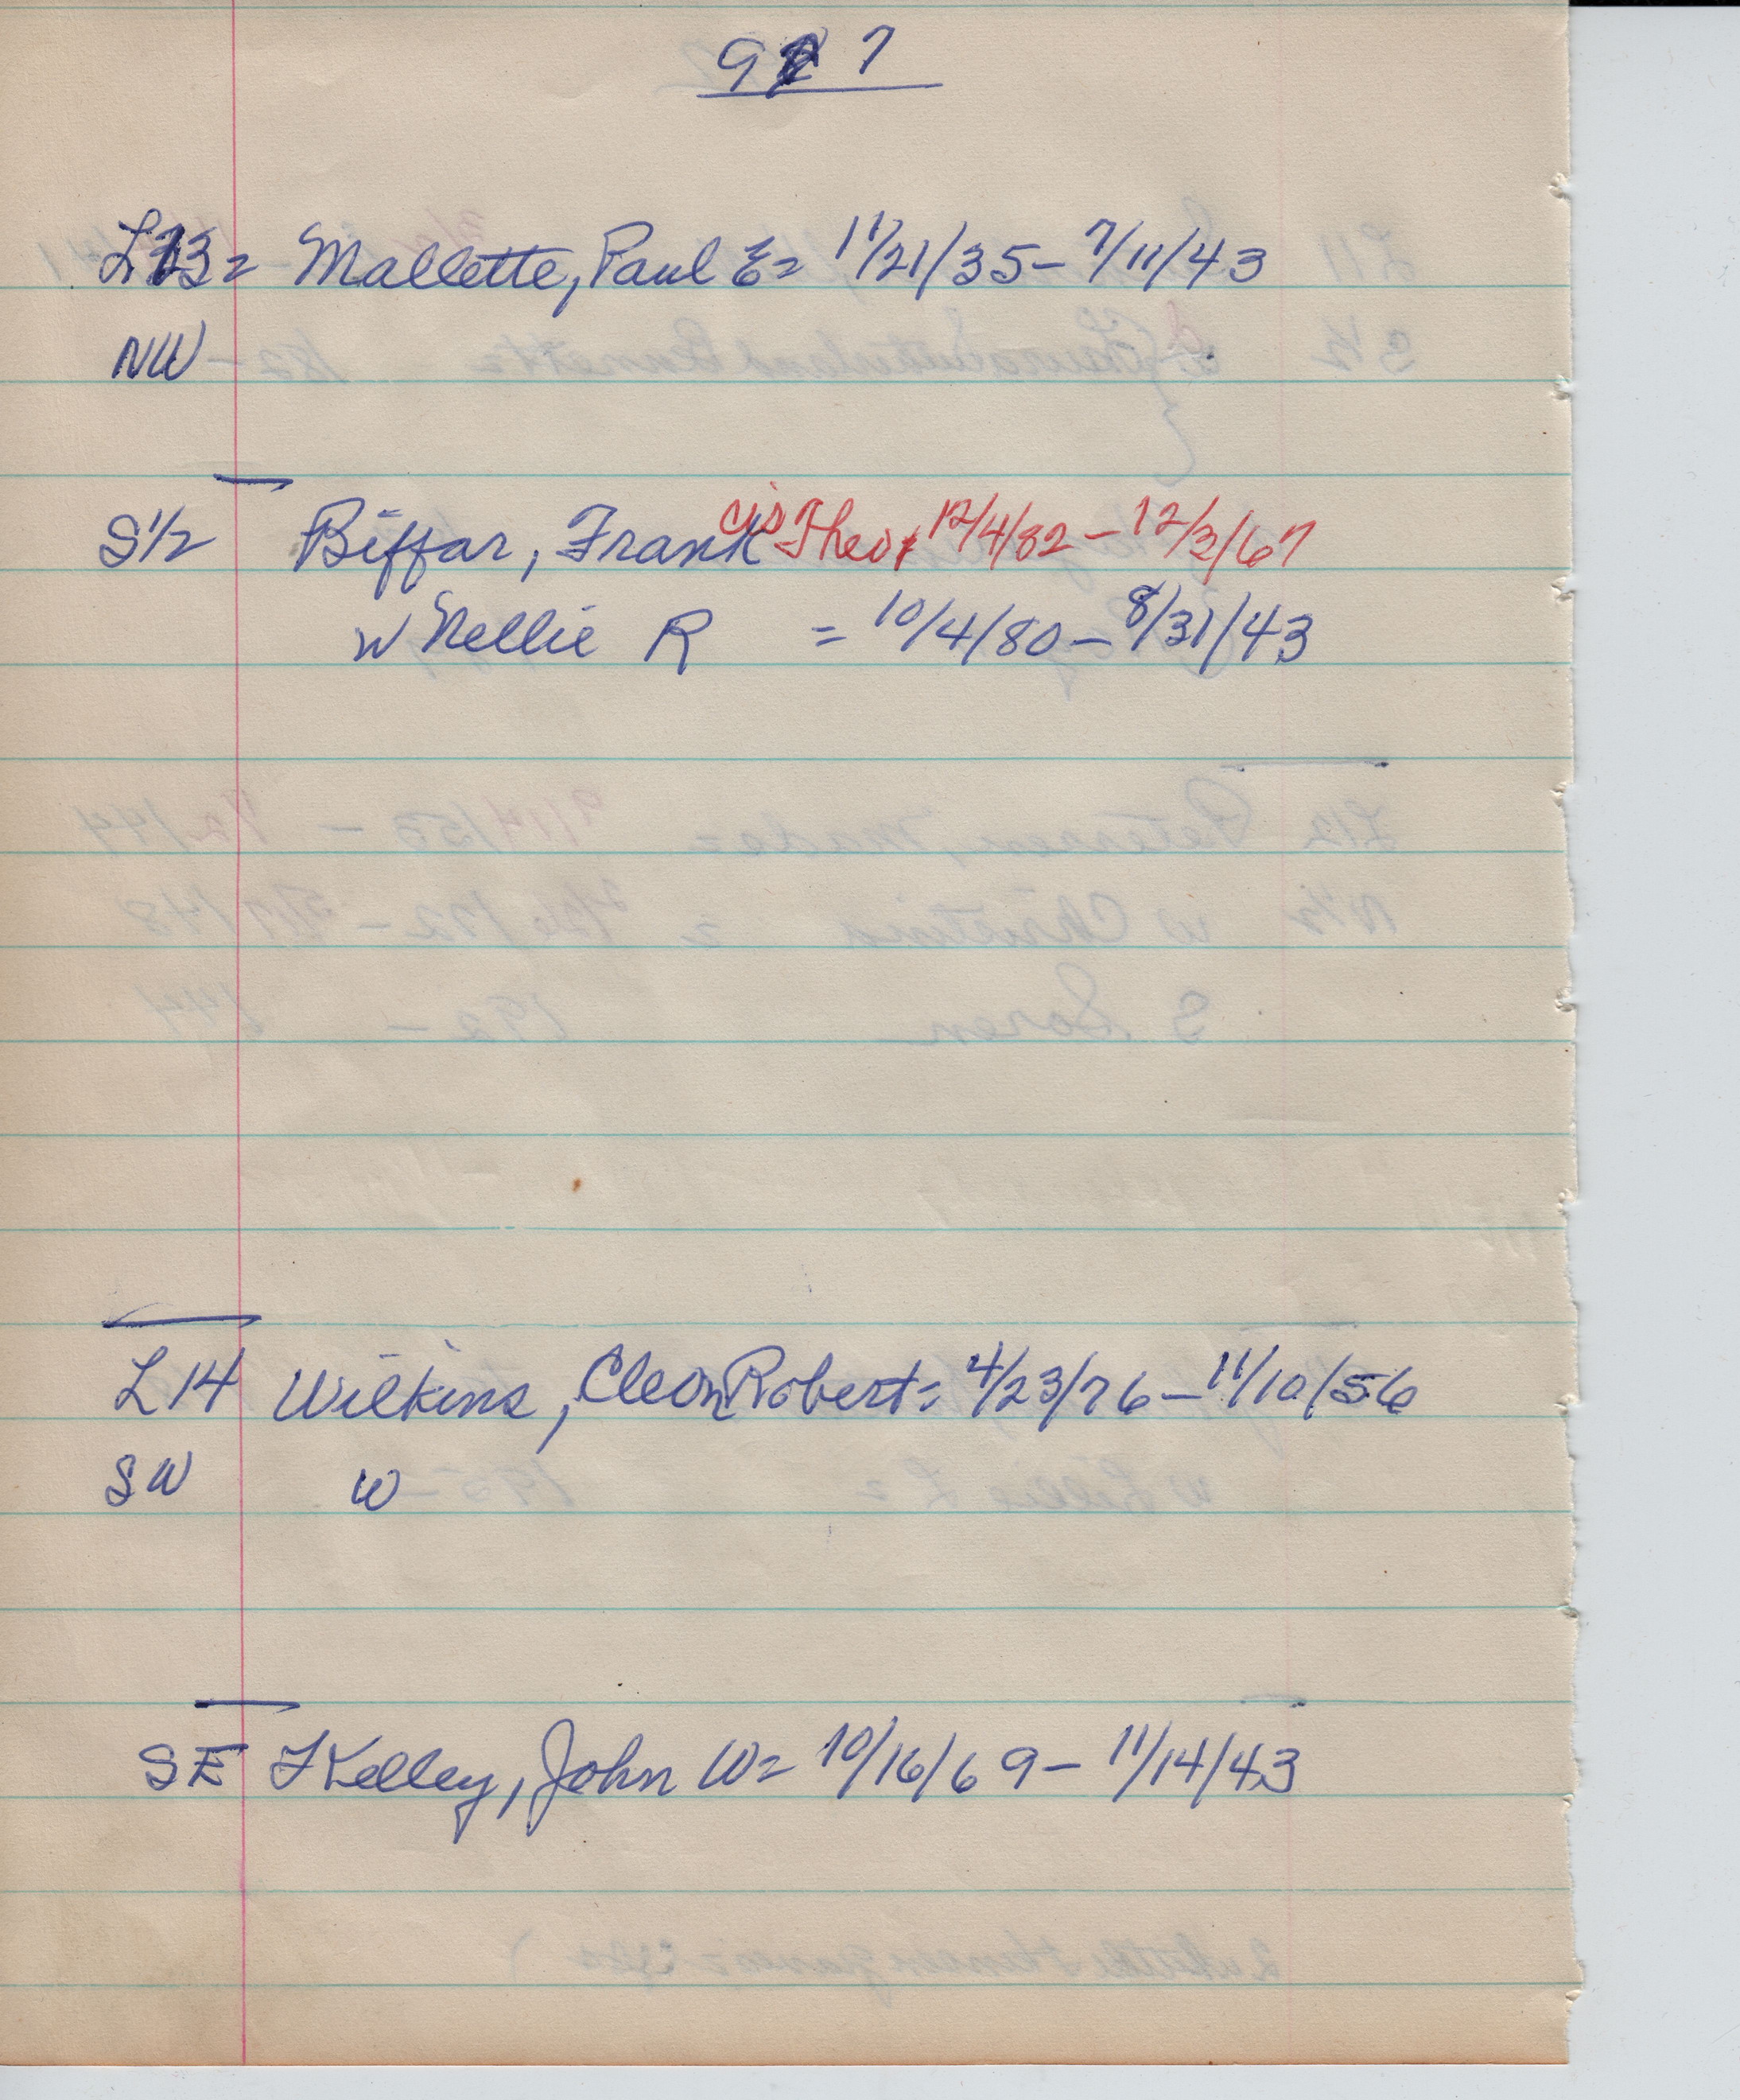 9 7
L13= Mallette, Paul E= 11/21/35 - 7/11/43
NW
S 1/2 Biffar, Frankcis Theo, 12/4/82 - 12/3/67
w Nellie R = 10/4/80 - 8/31/43
L14 Wilkins, Cleon Robert= 4/23/76 - 11/10/56
SW W
SE Kelley, John W= 10/16/69 - 11/14/43